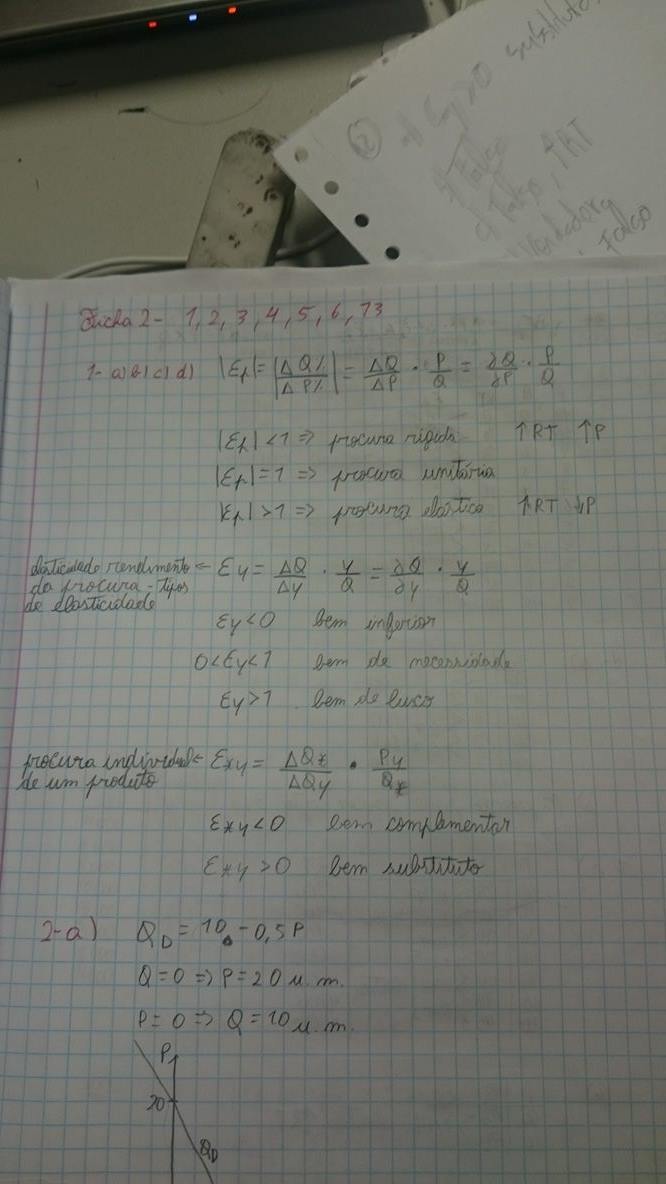 2) a) Ey>0 substituto
b) Falso
c) Falso, ↑RT
Vendedora
Falso
Ficha 2 - 1, 2, 3, 4, 5, 6, 73
1- a) b) c) d) |Ep| = |ΔQ%/ΔP%| = ΔQ/ΔP · P/Q = ∂Q/∂P · P/Q
|Ep| < 1 => procura rígida ↑RT ↑P
|Ep| = 1 => procura unitária
|Ep| > 1 => procura elástica ↑RT ↓P
elasticidade rendimento da procura - tipos de elasticidade <- Ey = ΔQ/Δy · y/Q = ∂Q/∂y · y/Q
Ey < 0 bem inferior
0 < Ey < 1 bem de necessidade
Ey > 1 bem de luxo
procura individual de um produto <- Exy = ΔQx/ΔQy · Py/Qx
Exy < 0 bem complementar
Exy > 0 bem substituto
2-a) QD = 10 - 0,5P
Q = 0 => P = 20 u.m.
P = 0 => Q = 10 u.m.
P
20
QD